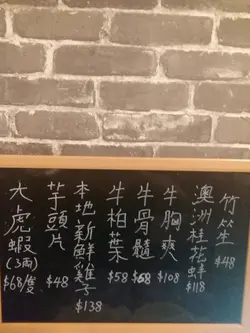 竹笙
$48
澳洲桂花蚌
$118
牛胸爽
$108
牛骨髓
$68
牛柏葉
$58
本地新鮮雞子
$138
芋頭片
$48
大虎蝦
(3両)
$68隻